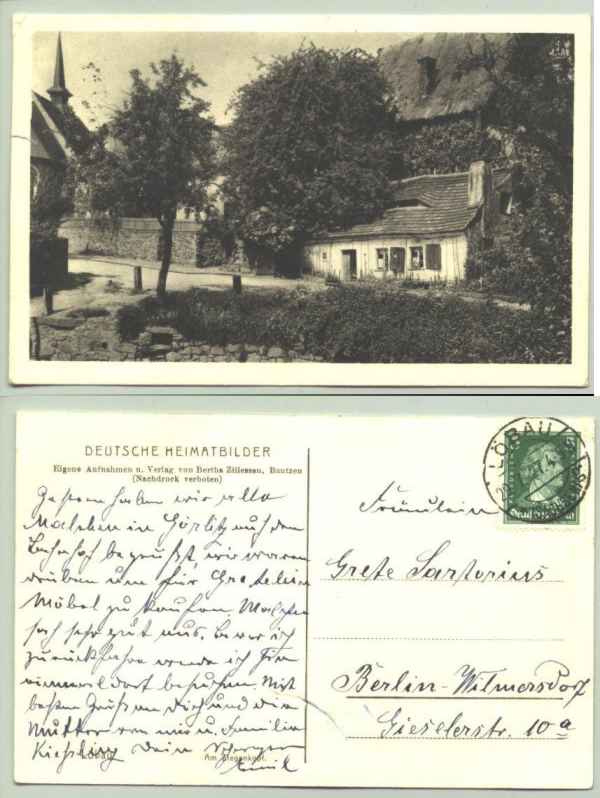 DEUTSCHE HEIMATBILDER
Eigene Aufnahmen u. Verlag von Bertha Zillessen, Bautzen
(Nachdruck verboten)
Gestern haben wir
in Görlitz auf dem
Bahnhof begrüßt, wir waren
drüben um für Gretelein
Möbel zu kaufen.
sah sehr gut aus. Bevor ich
zurückfahre werde ich Sie
besuchen. Mit
besten Grüßen an Dich und die
Mutter von mir u. Familie
Kiessling Dein
Emil
Löbau
Am Ziegenkopf.
LÖBAU
Fräulein
Grete Sartorius
Berlin-Wilmersdorf
Gieselerstr. 10a